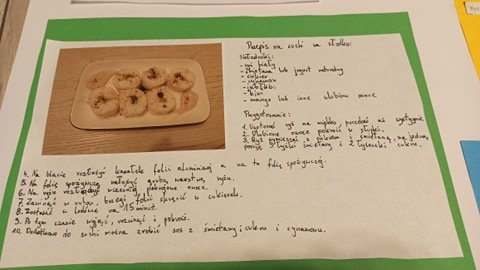 Przepis na sushi na słodko:
Składniki:
- ryż biały
- śmietana lub jogurt naturalny
- cukier
- cynamon
- jabłko
- kiwi
- mango lub inne ulubione owoce
Przygotowanie:
1. Ugotować ryż na miękko, poczekać aż wystygnie.
2. Ulubione owoce pokroić w słupki.
3. Ryż wymieszać z cukrem i śmietaną, na jedną
porcję 3 łyżki śmietany i 2 łyżeczki cukru.
4. Na blacie rozłożyć kawałek folii aluminiowej a na to folię spożywczą.
5. Na folię spożywczą nałożyć grubą warstwę ryżu.
6. Na ryżu rozłożyć wcześniej pokrojone owoce.
7. Zawinąć w rulon, brzegi folii skręcić w cukierek.
8. Zostawić w lodówce na 15 minut.
9. Po tym czasie wyjąć, rozwinąć i pokroić.
10. Dodatkowo do sushi można zrobić sos z śmietany, cukru i cynamonu.